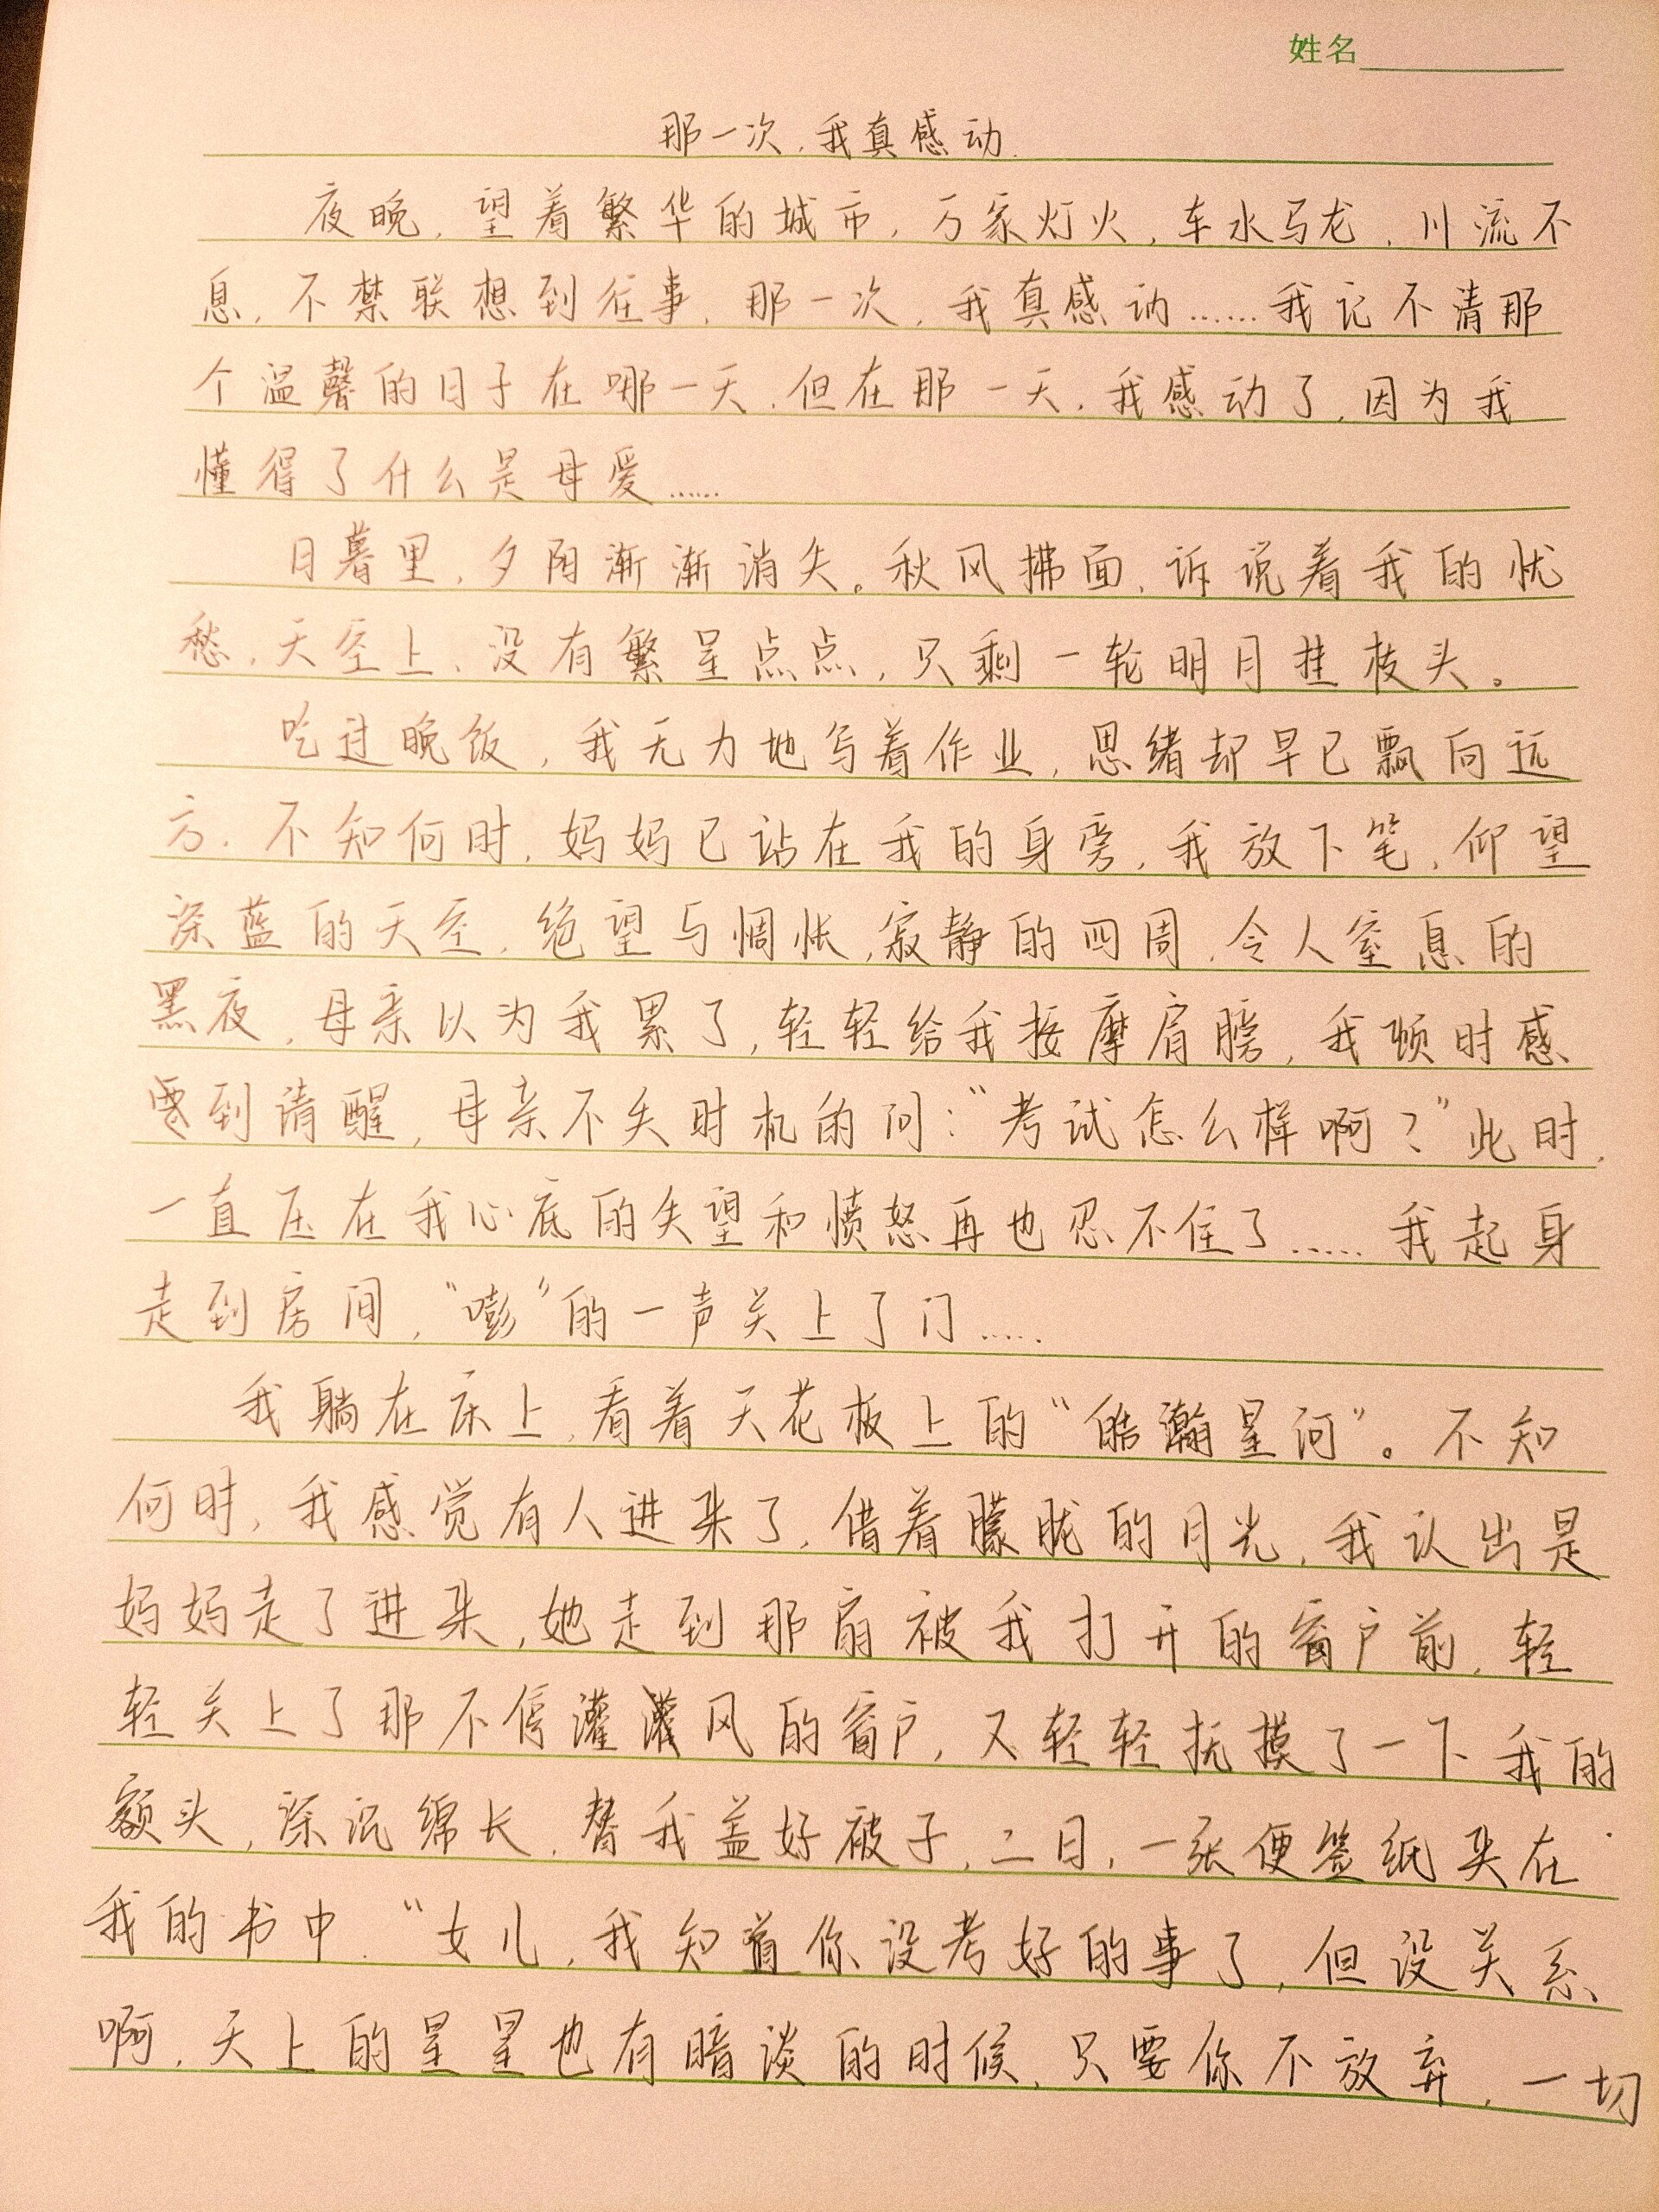 姓名
那一次，我真感动.
夜晚，望着繁华的城市，万家灯火，车水马龙，川流不
息，不禁联想到往事，那一次，我真感动……我记不清那
个温馨的日子在哪一天，但在那一天，我感动了，因为我
懂得了什么是母爱……
日暮里，夕阳渐渐消失。秋风拂面，诉说着我的忧
愁，天空上，没有繁星点点，只剩一轮明月挂枝头。
吃过晚饭，我无力地写着作业，思绪却早已飘向远
方．不知何时，妈妈已站在我的身旁，我放下笔，仰望
深蓝的天空，绝望与惆怅，寂静的四周，令人窒息的
黑夜，母亲以为我累了，轻轻给我按摩肩膀，我顿时感
到清醒，母亲不失时机的问：“考试怎么样啊？”此时，
一直压在我心底的失望和愤怒再也忍不住了……我起身
走到房间，“嘭”的一声关上了门……
我躺在床上，看着天花板上的“皓瀚星河”。不知
何时，我感觉有人进来了，借着朦胧的月光，我认出是
妈妈走了进来，她走到那扇被我打开的窗户前，轻
轻关上了那不停灌风的窗户，又轻轻抚摸了一下我的
额头，深沉绵长，替我盖好被子，二日，一张便签纸夹在
我的书中．“女儿，我知道你没考好的事了，但没关系
啊，天上的星星也有暗谈的时候，只要你不放弃，一切